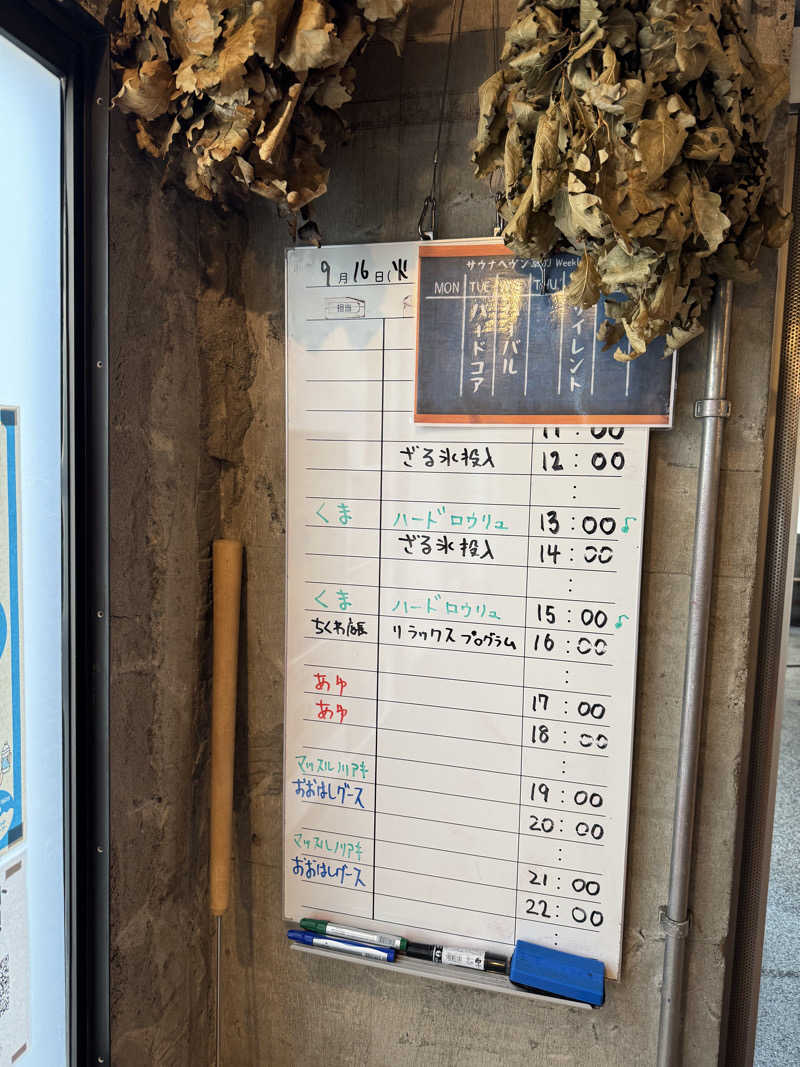 9月16日(火
サウナヘヴン
Weekl
MON TUE WED THU
ハードコア
サイレント
担当
11:00
ざる氷投入 12:00
:
くま ハードロウリュ 13:00♪
ざる氷投入 14:00
:
くま ハードロウリュ 15:00♪
ちくわ店長 リラックスプログラム 16:00
:
あゆ 17:00
あゆ 18:00
:
マッスルノリアキ 19:00
おおはしグース 20:00
:
マッスルノリアキ 21:00
おおはしグース 22:00
: